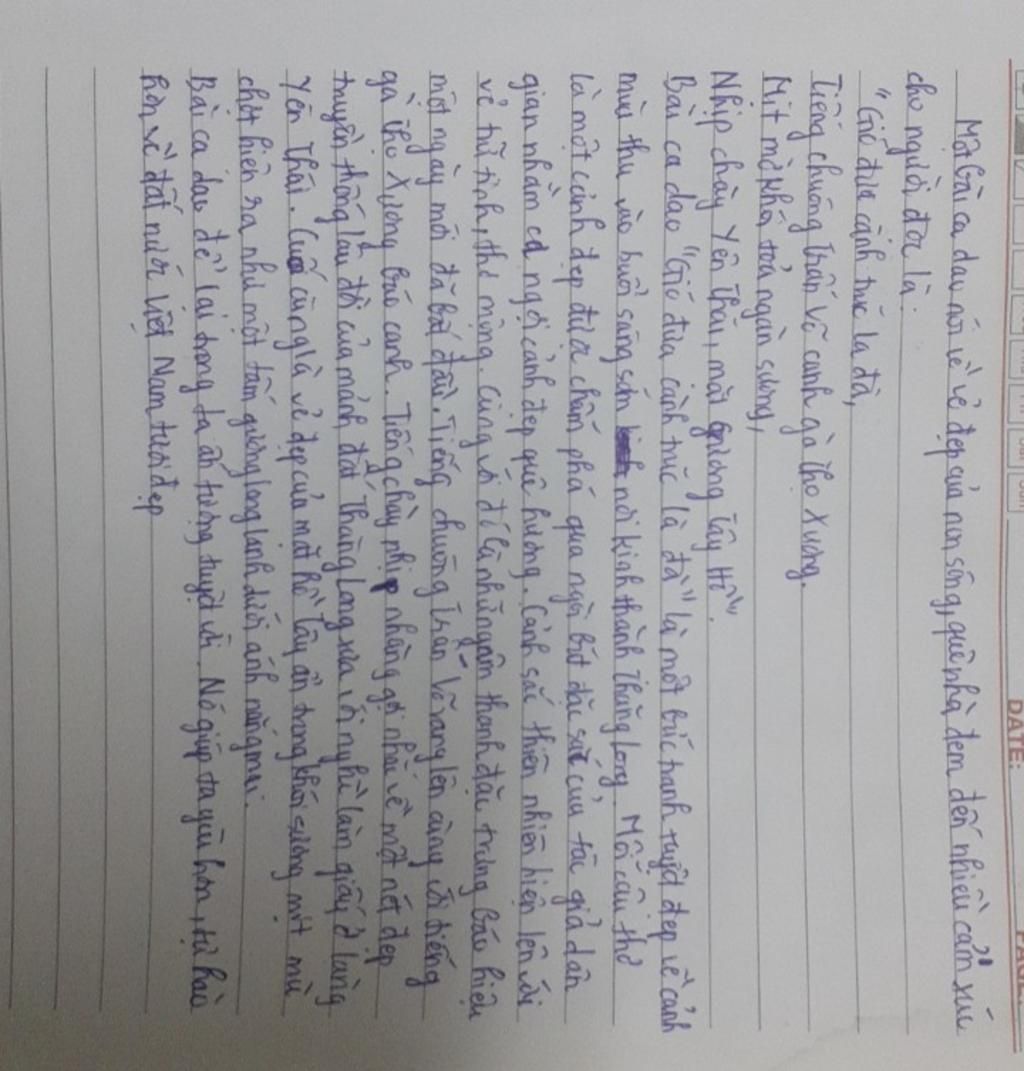 DATE:
PAGE:
Một bài ca dao nói về vẻ đẹp của non sông, quê nhà đem đến nhiều cảm xúc
cho người đọc là:
"Gió đưa cành trúc la đà,
Tiếng chuông Trấn Vũ canh gà Thọ Xương.
Mịt mờ khói toả ngàn sương,
Nhịp chày Yên Thái, mặt gương Tây Hồ".
Bài ca dao "Gió đưa cành trúc là đà" là một bức tranh tuyệt đẹp về cảnh
mùa thu vào buổi sáng sớm nơi kinh thành Thăng Long. Mỗi câu thơ
là một cảnh đẹp được chấm phá qua ngòi bút đặc sắc của tác giả dân
gian nhằm ca ngợi cảnh đẹp quê hương. Cảnh sắc thiên nhiên hiện lên với
vẻ trữ tình, thơ mộng. Cùng với đó là những âm thanh đặc trưng báo hiệu
một ngày mới đã bắt đầu. Tiếng chuông Trấn Vũ vang lên cùng với tiếng
gà Thọ Xương báo canh. Tiếng chày nhịp nhàng gợi nhắc về một nét đẹp
truyền thống lâu đời của mảnh đất Thăng Long xưa với nghề làm giấy ở làng
Yên Thái. Cuối cùng là vẻ đẹp của mặt hồ Tây ẩn trong khói sương mịt mù
chợt hiện ra như một tấm gương long lanh dưới ánh nắng mai.
Bài ca dao để lại trong ta ấn tượng tuyệt vời. Nó giúp ta yêu hơn, tự hào
hơn về đất nước Việt Nam tươi đẹp